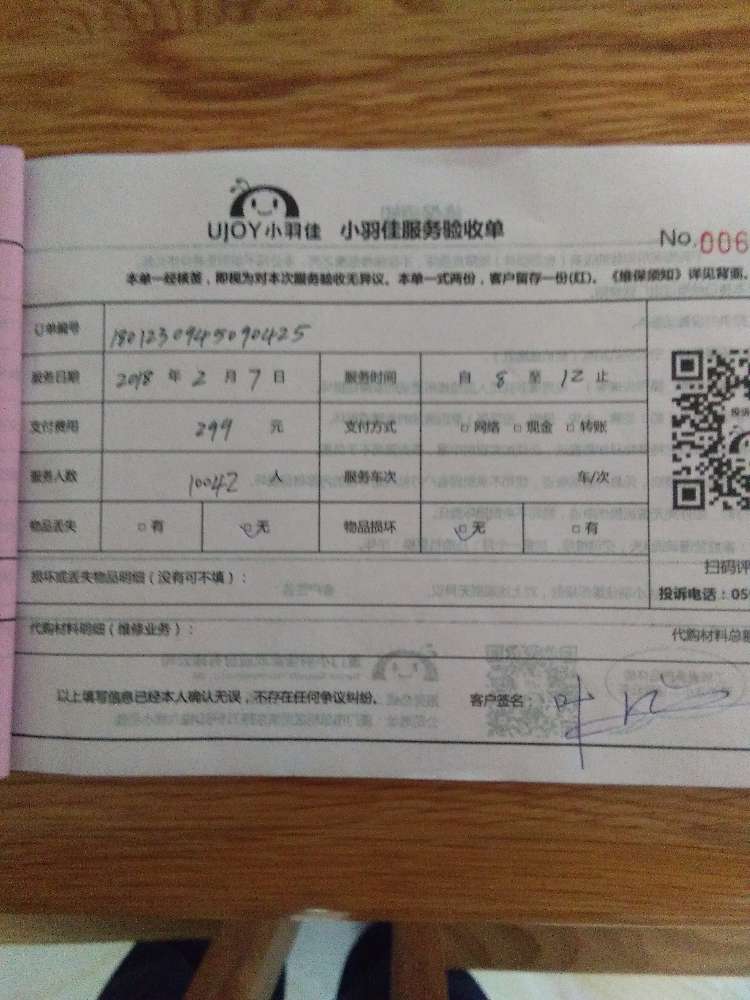 UJOY小羽佳 小羽佳服务验收单
No.006
本单一经核签，即视为对本次服务验收无异议。本单一式两份，客户留存一份(红)。《维保须知》详见背面。
订单编号 1801230945090425
服务日期 2018 年 2 月 7 日 服务时间 自 8 至 12 止
支付费用 299 元 支付方式 □网络 □现金 □转账
服务人数 10042 人 服务车次 车/次
物品丢失 □有 □无 物品损坏 □无 □有
扫码评
损坏或丢失物品明细（没有可不填）：
投诉电话：059
代购材料明细（维修业务）： 代购材料总额
以上填写信息已经本人确认无误，不存在任何争议纠纷。 客户签名：